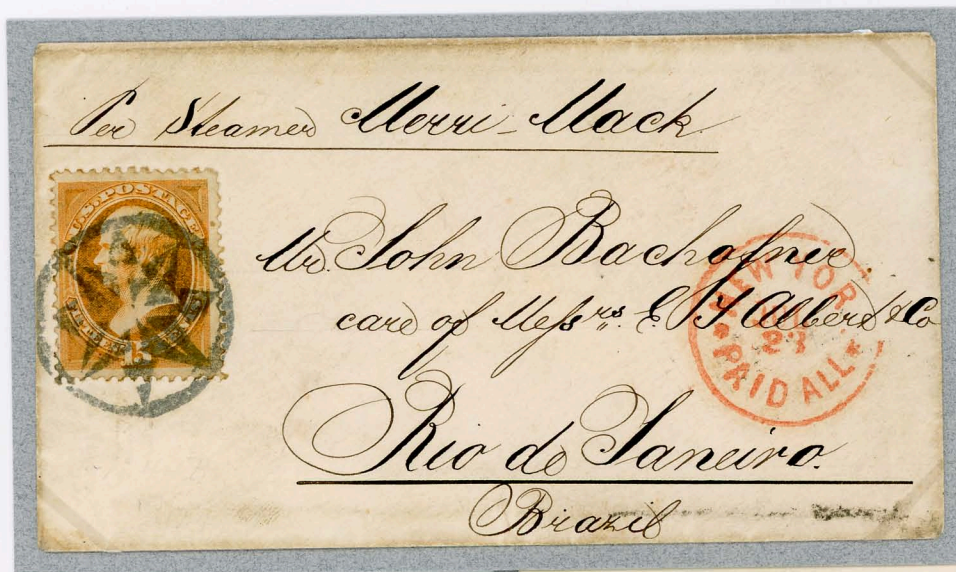 Per Steamer Merri-Mack
U.S. POSTAGE
FIFTEEN CENTS
15
Mr. John Bachofner
care of Messrs. E. Albert & Co
NEW YORK
23
PAID ALL
Rio de Janeiro.
Brazil